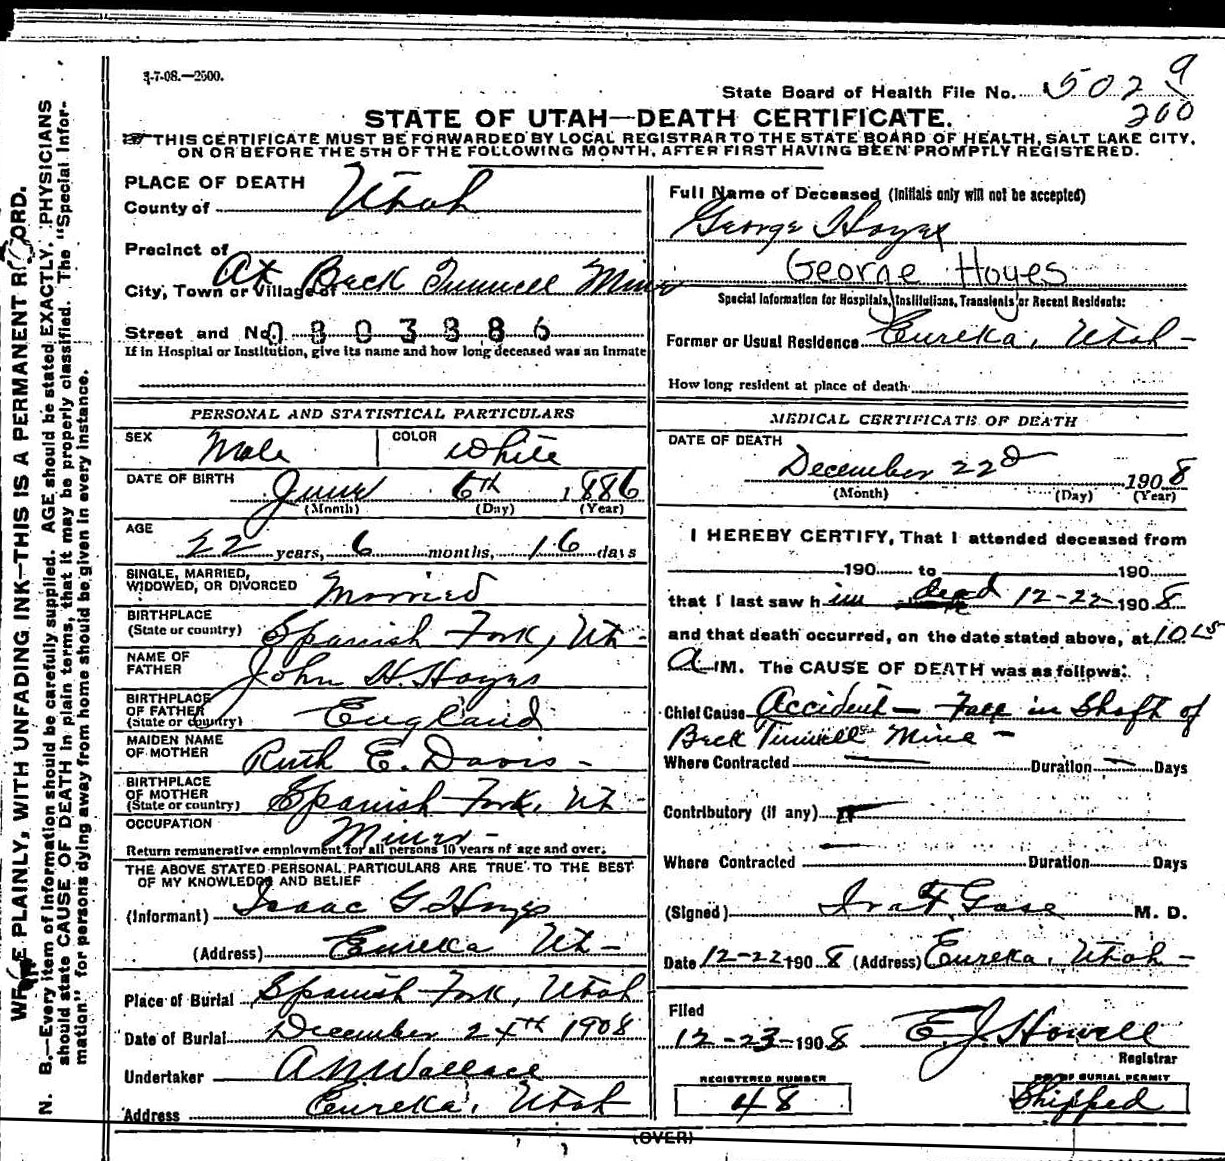 3-7-08.—2500.
State Board of Health File No. 502 9
260
STATE OF UTAH—DEATH CERTIFICATE.
THIS CERTIFICATE MUST BE FORWARDED BY LOCAL REGISTRAR TO THE STATE BOARD OF HEALTH, SALT LAKE CITY,
ON OR BEFORE THE 5TH OF THE FOLLOWING MONTH, AFTER FIRST HAVING BEEN PROMPTLY REGISTERED.
PLACE OF DEATH
County of Utah
Precinct of
City, Town or Village of At Beck Tunnell Mine
Street and No. 0803886
If in Hospital or Institution, give its name and how long deceased was an Inmate
PERSONAL AND STATISTICAL PARTICULARS
SEX Male COLOR White
DATE OF BIRTH June 6th, 1886
(Month) (Day) (Year)
AGE
22 years, 6 months, 16 days
SINGLE, MARRIED,
WIDOWED, OR DIVORCED Married
BIRTHPLACE
(State or country) Spanish Fork, Ut-
NAME OF
FATHER John H. Hayes
BIRTHPLACE
OF FATHER
(State or country) England
MAIDEN NAME
OF MOTHER Ruth E. Davis -
BIRTHPLACE
OF MOTHER
(State or country) Spanish Fork, Ut-
OCCUPATION Miner -
Return remunerative employment for all persons 10 years of age and over.
THE ABOVE STATED PERSONAL PARTICULARS ARE TRUE TO THE BEST
OF MY KNOWLEDGE AND BELIEF
(Informant) Isaac G Hayes
(Address) Eureka Ut-
Place of Burial Spanish Fork, Utah
Date of Burial December 24th 1908
Undertaker A. N. Wallace
Address Eureka, Utah
Full Name of Deceased (Initials only will not be accepted)
George Hayes
George Hoyes
Special Information for Hospitals, Institutions, Transients or Recent Residents:
Former or Usual Residence Eureka, Utah -
How long resident at place of death
MEDICAL CERTIFICATE OF DEATH
DATE OF DEATH
December 22d 1908
(Month) (Day) (Year)
I HEREBY CERTIFY, That I attended deceased from
190 to 190
that I last saw him dead 12-22-1908
and that death occurred, on the date stated above, at 10 45
A M. The CAUSE OF DEATH was as follows:
Chief Cause Accident - Fall in Shaft of
Beck Tunnell Mine -
Where Contracted Duration Days
Contributory (if any)
Where Contracted Duration Days
(Signed) Ira F. Gase M. D.
Date 12-22-1908 (Address) Eureka, Utah -
Filed
12-23-1908 E. J. Howell
Registrar
REGISTERED NUMBER
48
NO. OF BURIAL PERMIT
Shipped
(OVER)
WRITE PLAINLY, WITH UNFADING INK—THIS IS A PERMANENT RECORD.
N. B.—Every item of information should be carefully supplied. AGE should be stated EXACTLY. PHYSICIANS
should state CAUSE OF DEATH in plain terms, that it may be properly classified. The "Special Infor-
mation" for persons dying away from home should be given in every instance.